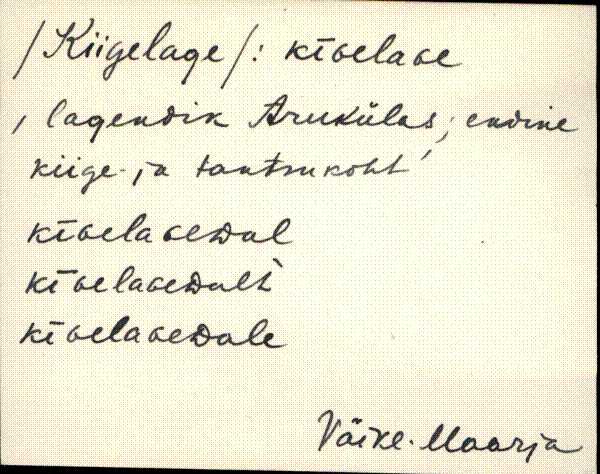 /Kiigelage/: kīɢelaɢe
‚ lagendik Arukülas; endine
kiige- ja tantsukoht’
kīɢelaɢeᴅal
kīɢelaɢeᴅalt̀
kīɢelaɢeᴅale
Väike-Maarja